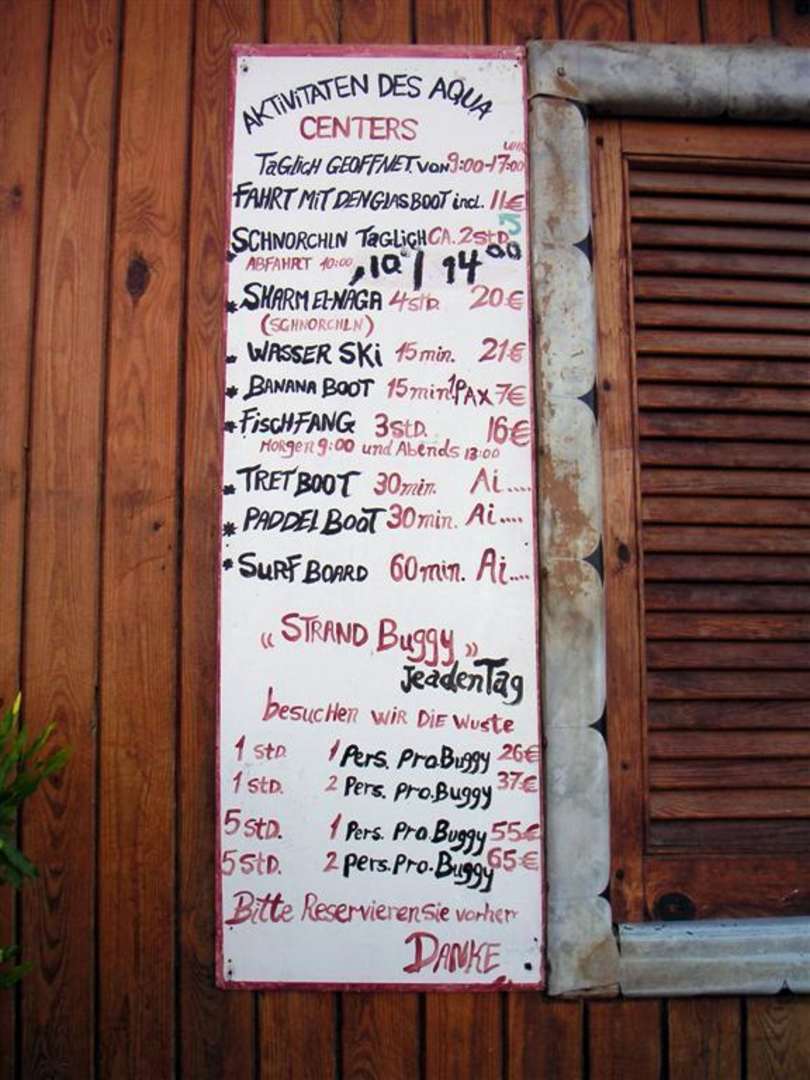 AKTIVITATEN DES AQUA
CENTERS
TAGLICH GEOFFNET. VON 9:00-17:00
FAHRT MIT DEN GLASBOOT incl. 11€
SCHNORCHLN TAGLICH CA. 2STD.
ABFAHRT 10:00, 10°° / 14°°
* SHARM EL-NAGA 4STD. 20€
(SCHNORCHLN)
* WASSER SKi 15min. 21€
* BANANA BOOT 15min 1PAX 7€
* FISCHFANG 3STD. 16€
MORGEN 9:00 und Abends 13:00
* TRETBOOT 30min. Ai....
* PADDELBOOT 30min. Ai....
* SURF BOARD 60min. Ai....
"STRAND Buggy"
JeadenTag
besuchen WIR DIE WUSTE
1 STD. 1 Pers. Pro.Buggy 26€
1 STD. 2 Pers. Pro.Buggy 37€
5 STD. 1 Pers. Pro.Buggy 55€
5 STD. 2 Pers. Pro.Buggy 65€
Bitte Reservieren Sie vorher
DANKE